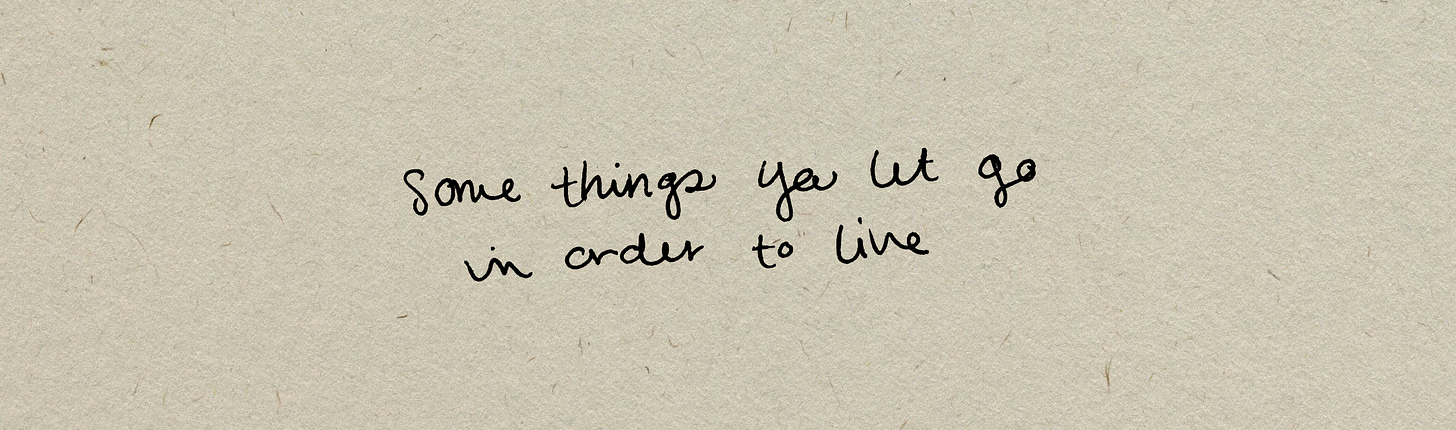 Some things ya let go
in order to live